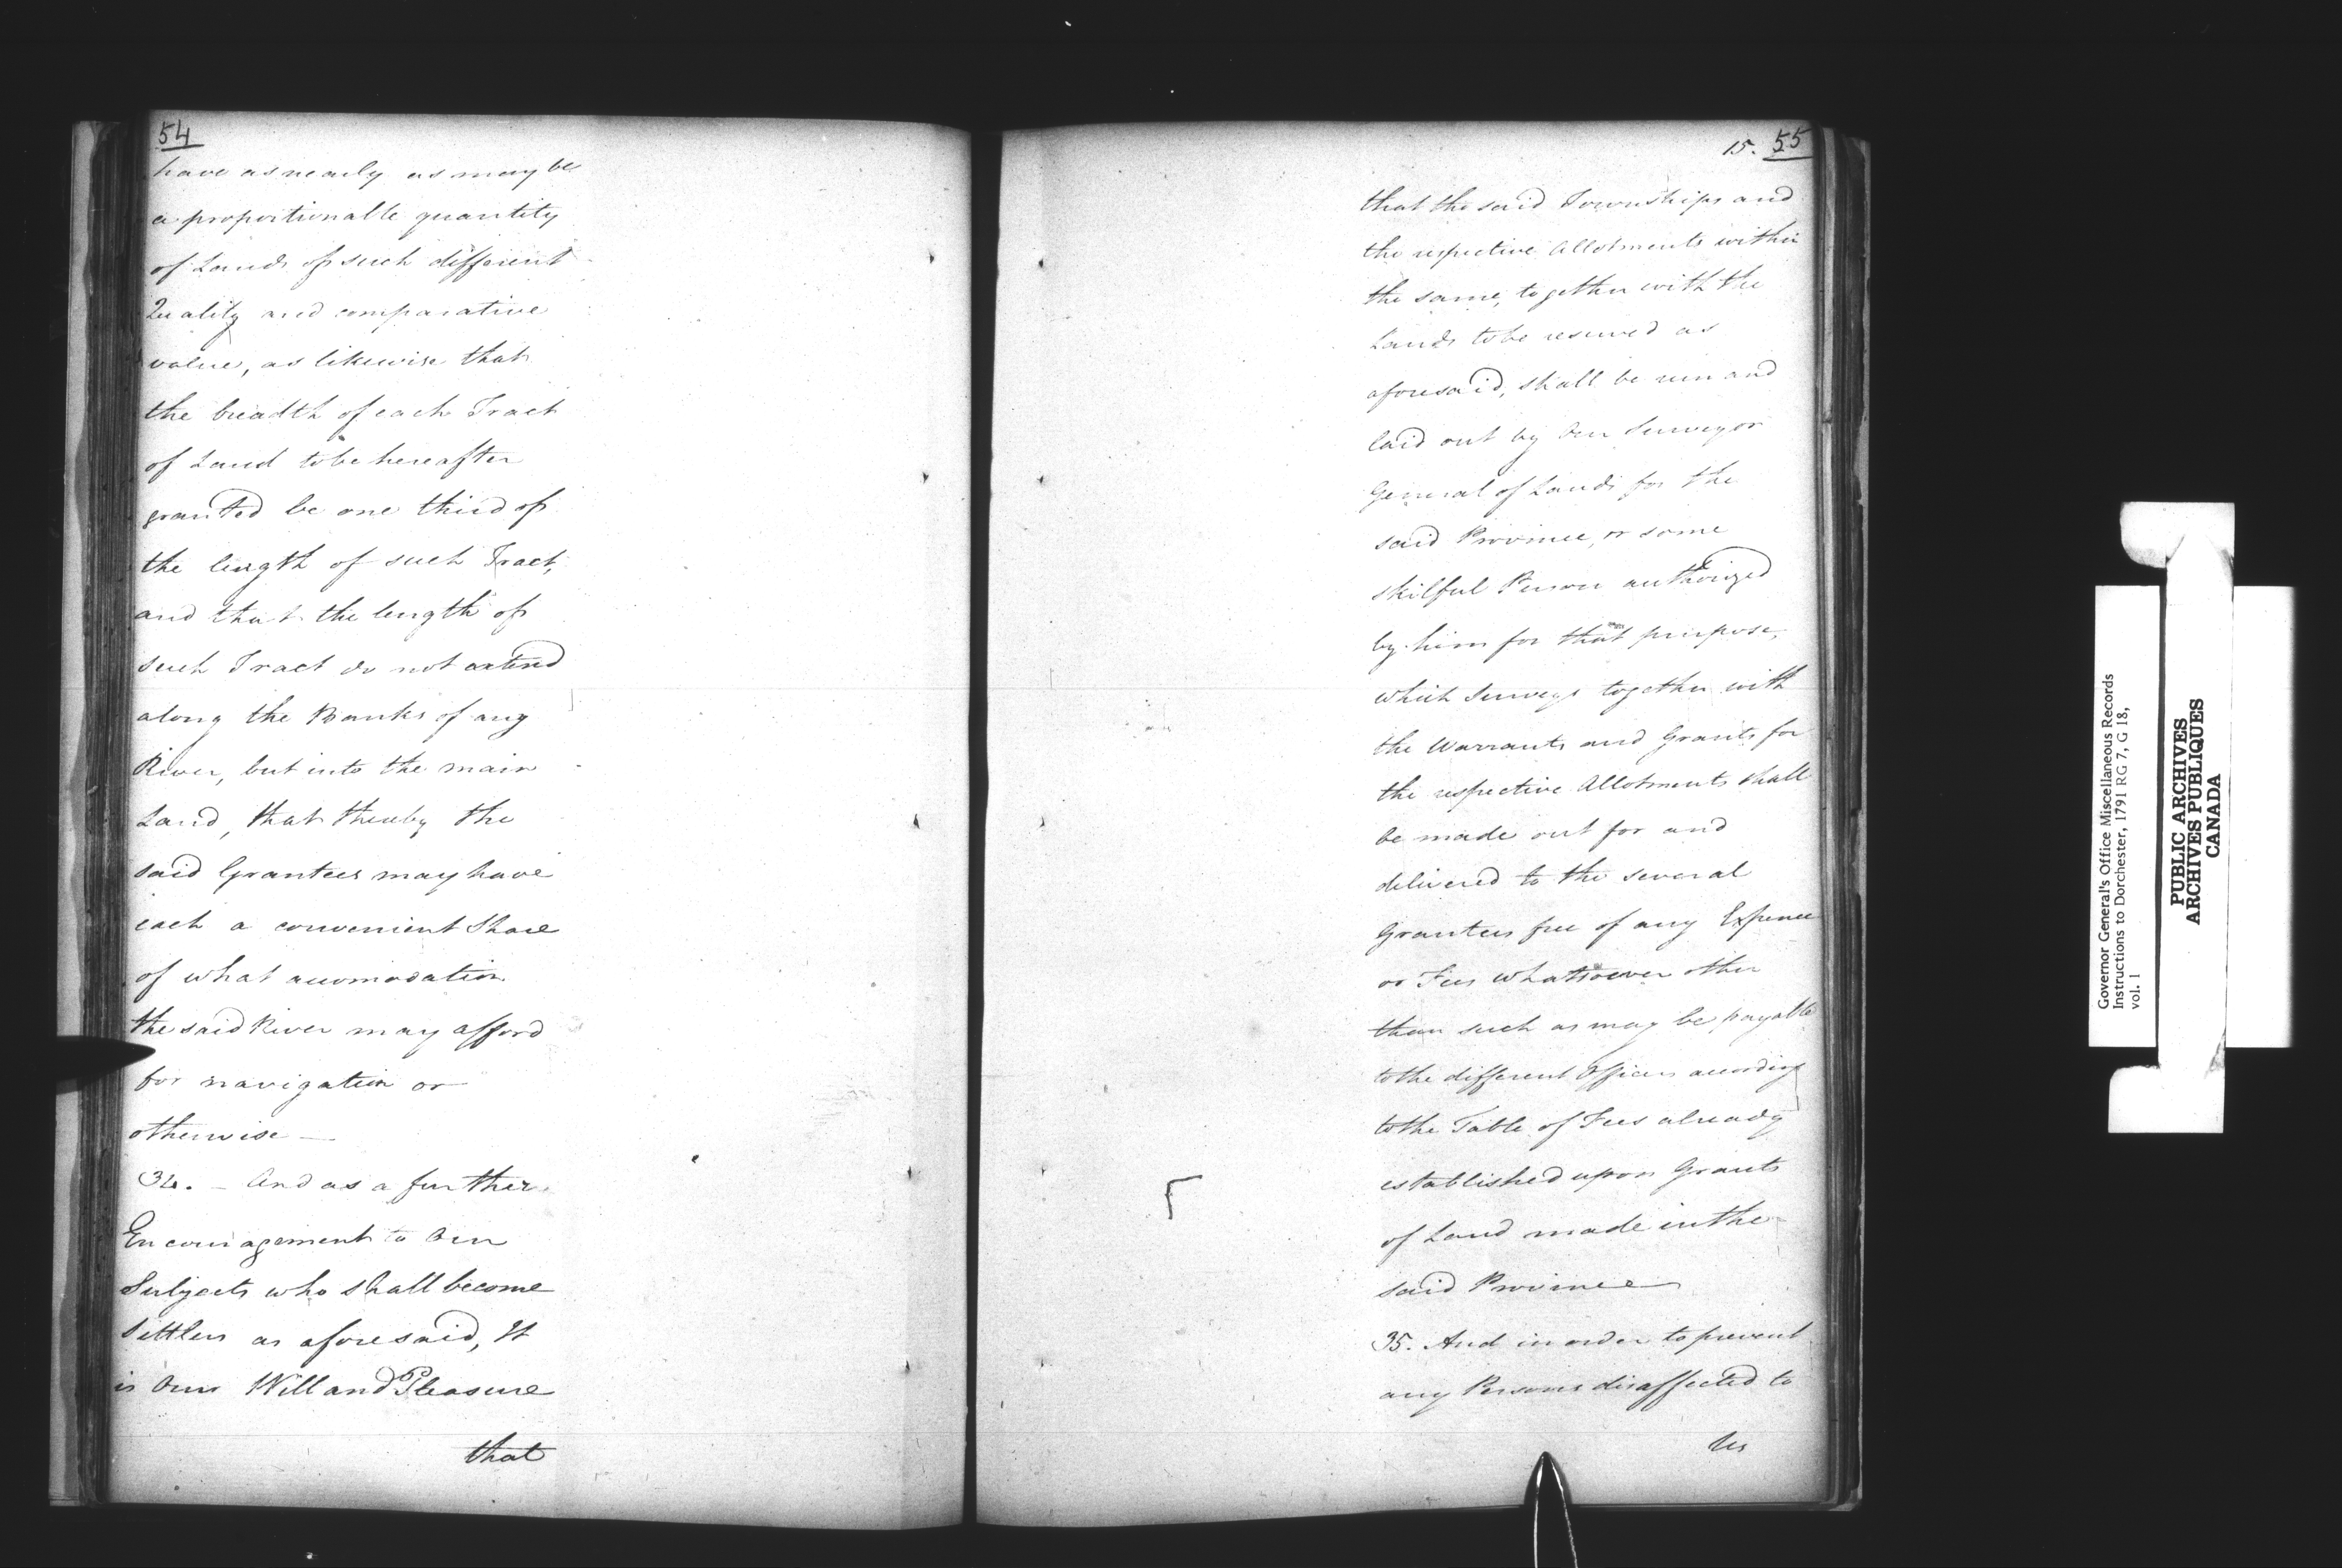 54
have as nearly as may be
a proportionable quantity
of Lands of such different
Quality and comparative
value, as likewise that
the breadth of each Tract
of Land to be hereafter
granted be one third of
the length of such Tract,
and that the length of
such Tract do not extend
along the Banks of any
River, but into the main
Land, that thereby the
said Grantees may have
each a convenient Share
of what accomodation
the said River may afford
for navigation or
otherwise —
34. – And as a further
Encouragement to Our
Subjects who shall become
Settlers as aforesaid, It
is Our Will and Pleasure
that
15. 55
that the said Townships and
the respective Allotments within
the same, together with the
Lands to be reserved as
aforesaid, shall be run and
laid out by Our Surveyor
General of Lands for the
said Province, or some
skilful Person authorized
by him for that purpose,
which Surveys together with
the Warrants and Grants for
the respective Allotments shall
be made out for and
delivered to the several
Grantees free of any Expence
or Fees whatsoever other
than such as may be payable
to the different Officers according
to the Table of Fees already
established upon Grants
of Land made in the
said Province
35. And in order to prevent
any Persons disaffected to
Us
Governor General's Office Miscellaneous Records
Instructions to Dorchester, 1791 RG 7, G 18,
vol. 1
PUBLIC ARCHIVES
ARCHIVES PUBLIQUES
CANADA